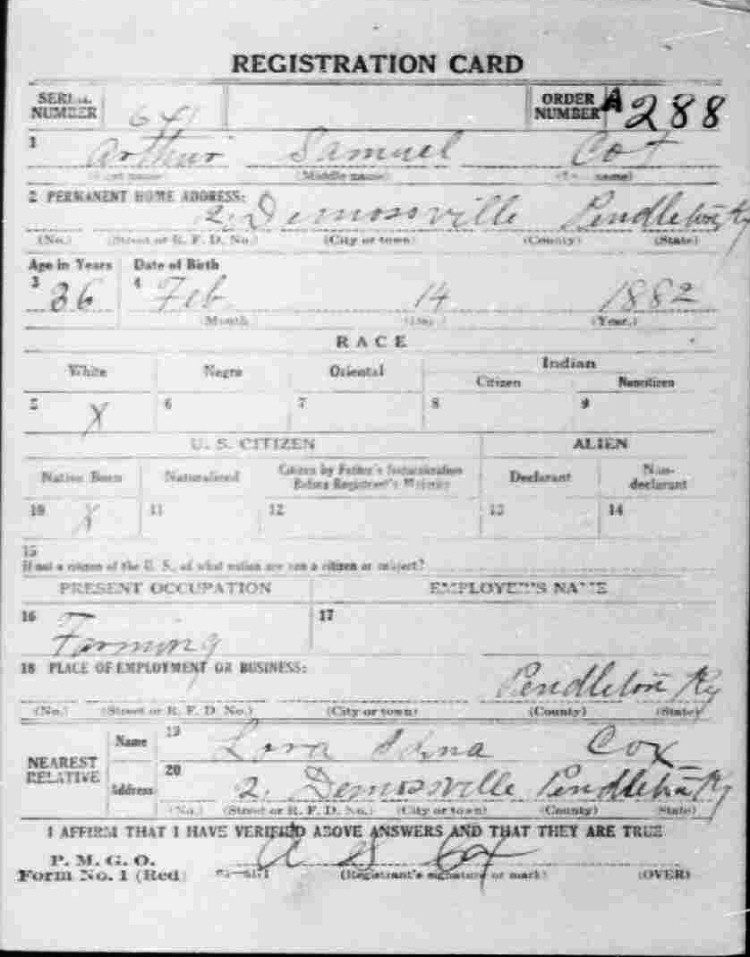 REGISTRATION CARD
SERIAL NUMBER 641 ORDER NUMBER A 288
1 Arthur Samuel Cox
(First name) (Middle name) (Last name)
2 PERMANENT HOME ADDRESS:
2. Demossville Pendleton Ky
(No.) (Street or R. F. D. No.) (City or town) (County) (State)
Age in Years Date of Birth
3 36 4 Feb 14 1882
(Month.) (Day.) (Year.)
RACE
White Negro Oriental Indian
Citizen Noncitizen
5 X 6 7 8 9
U. S. CITIZEN ALIEN
Native Born Naturalized Citizen by Father's Naturalization Before Registrant's Majority Declarant Non-declarant
10 X 11 12 13 14
15
If not a citizen of the U. S., of what nation are you a citizen or subject?
PRESENT OCCUPATION EMPLOYER'S NAME
16 Farming 17
18 PLACE OF EMPLOYMENT OR BUSINESS:
Pendleton Ky
(No.) (Street or R. F. D. No.) (City or town) (County) (State)
NEAREST RELATIVE Name 19 Lora Edna Cox
Address 20 2. Demossville Pendleton Ky
(No.) (Street or R. F. D. No.) (City or town) (County) (State)
I AFFIRM THAT I HAVE VERIFIED ABOVE ANSWERS AND THAT THEY ARE TRUE
P. M. G. O.
Form No. 1 (Red) A S Cox
(Registrant's signature or mark) (OVER)